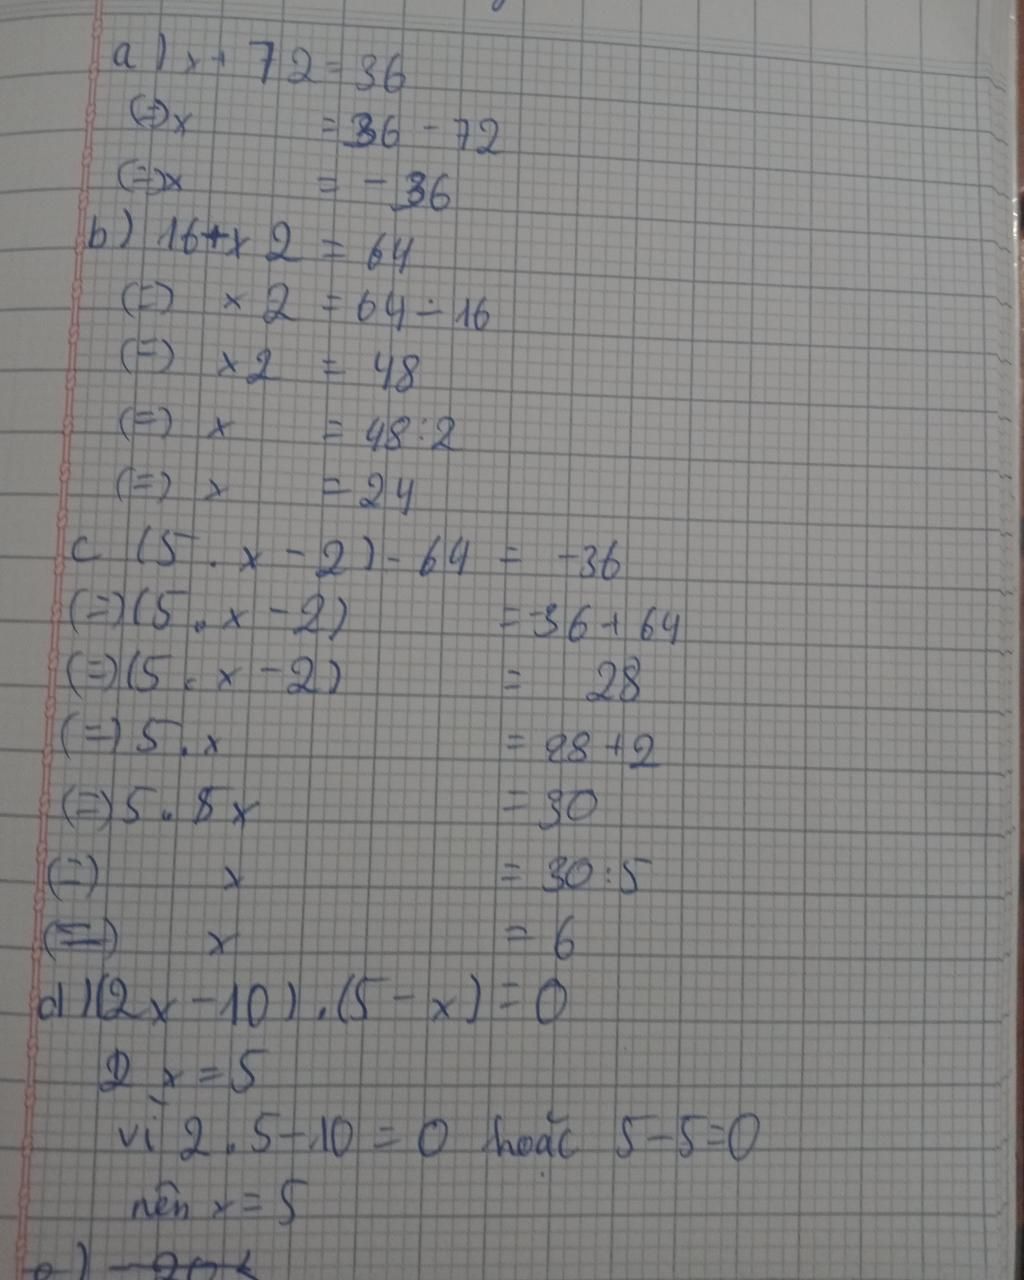 a) x + 72 = 36
(=) x = 36 - 72
(=) x = - 36
b) 16 + x 2 = 64
(=) x 2 = 64 - 16
(=) x 2 = 48
(=) x = 48 : 2
(=) x = 24
c (5 . x - 2) - 64 = -36
(=) (5 . x - 2) = -36 + 64
(=) (5 . x - 2) = 28
(=) 5 . x = 28 + 2
(=) 5 . 5 x = 30
(=) x = 30 : 5
(=) x = 6
d) (2x - 10) . (5 - x) = 0
x = 5
vì 2 . 5 - 10 = 0 hoặc 5 - 5 = 0
nên x = 5